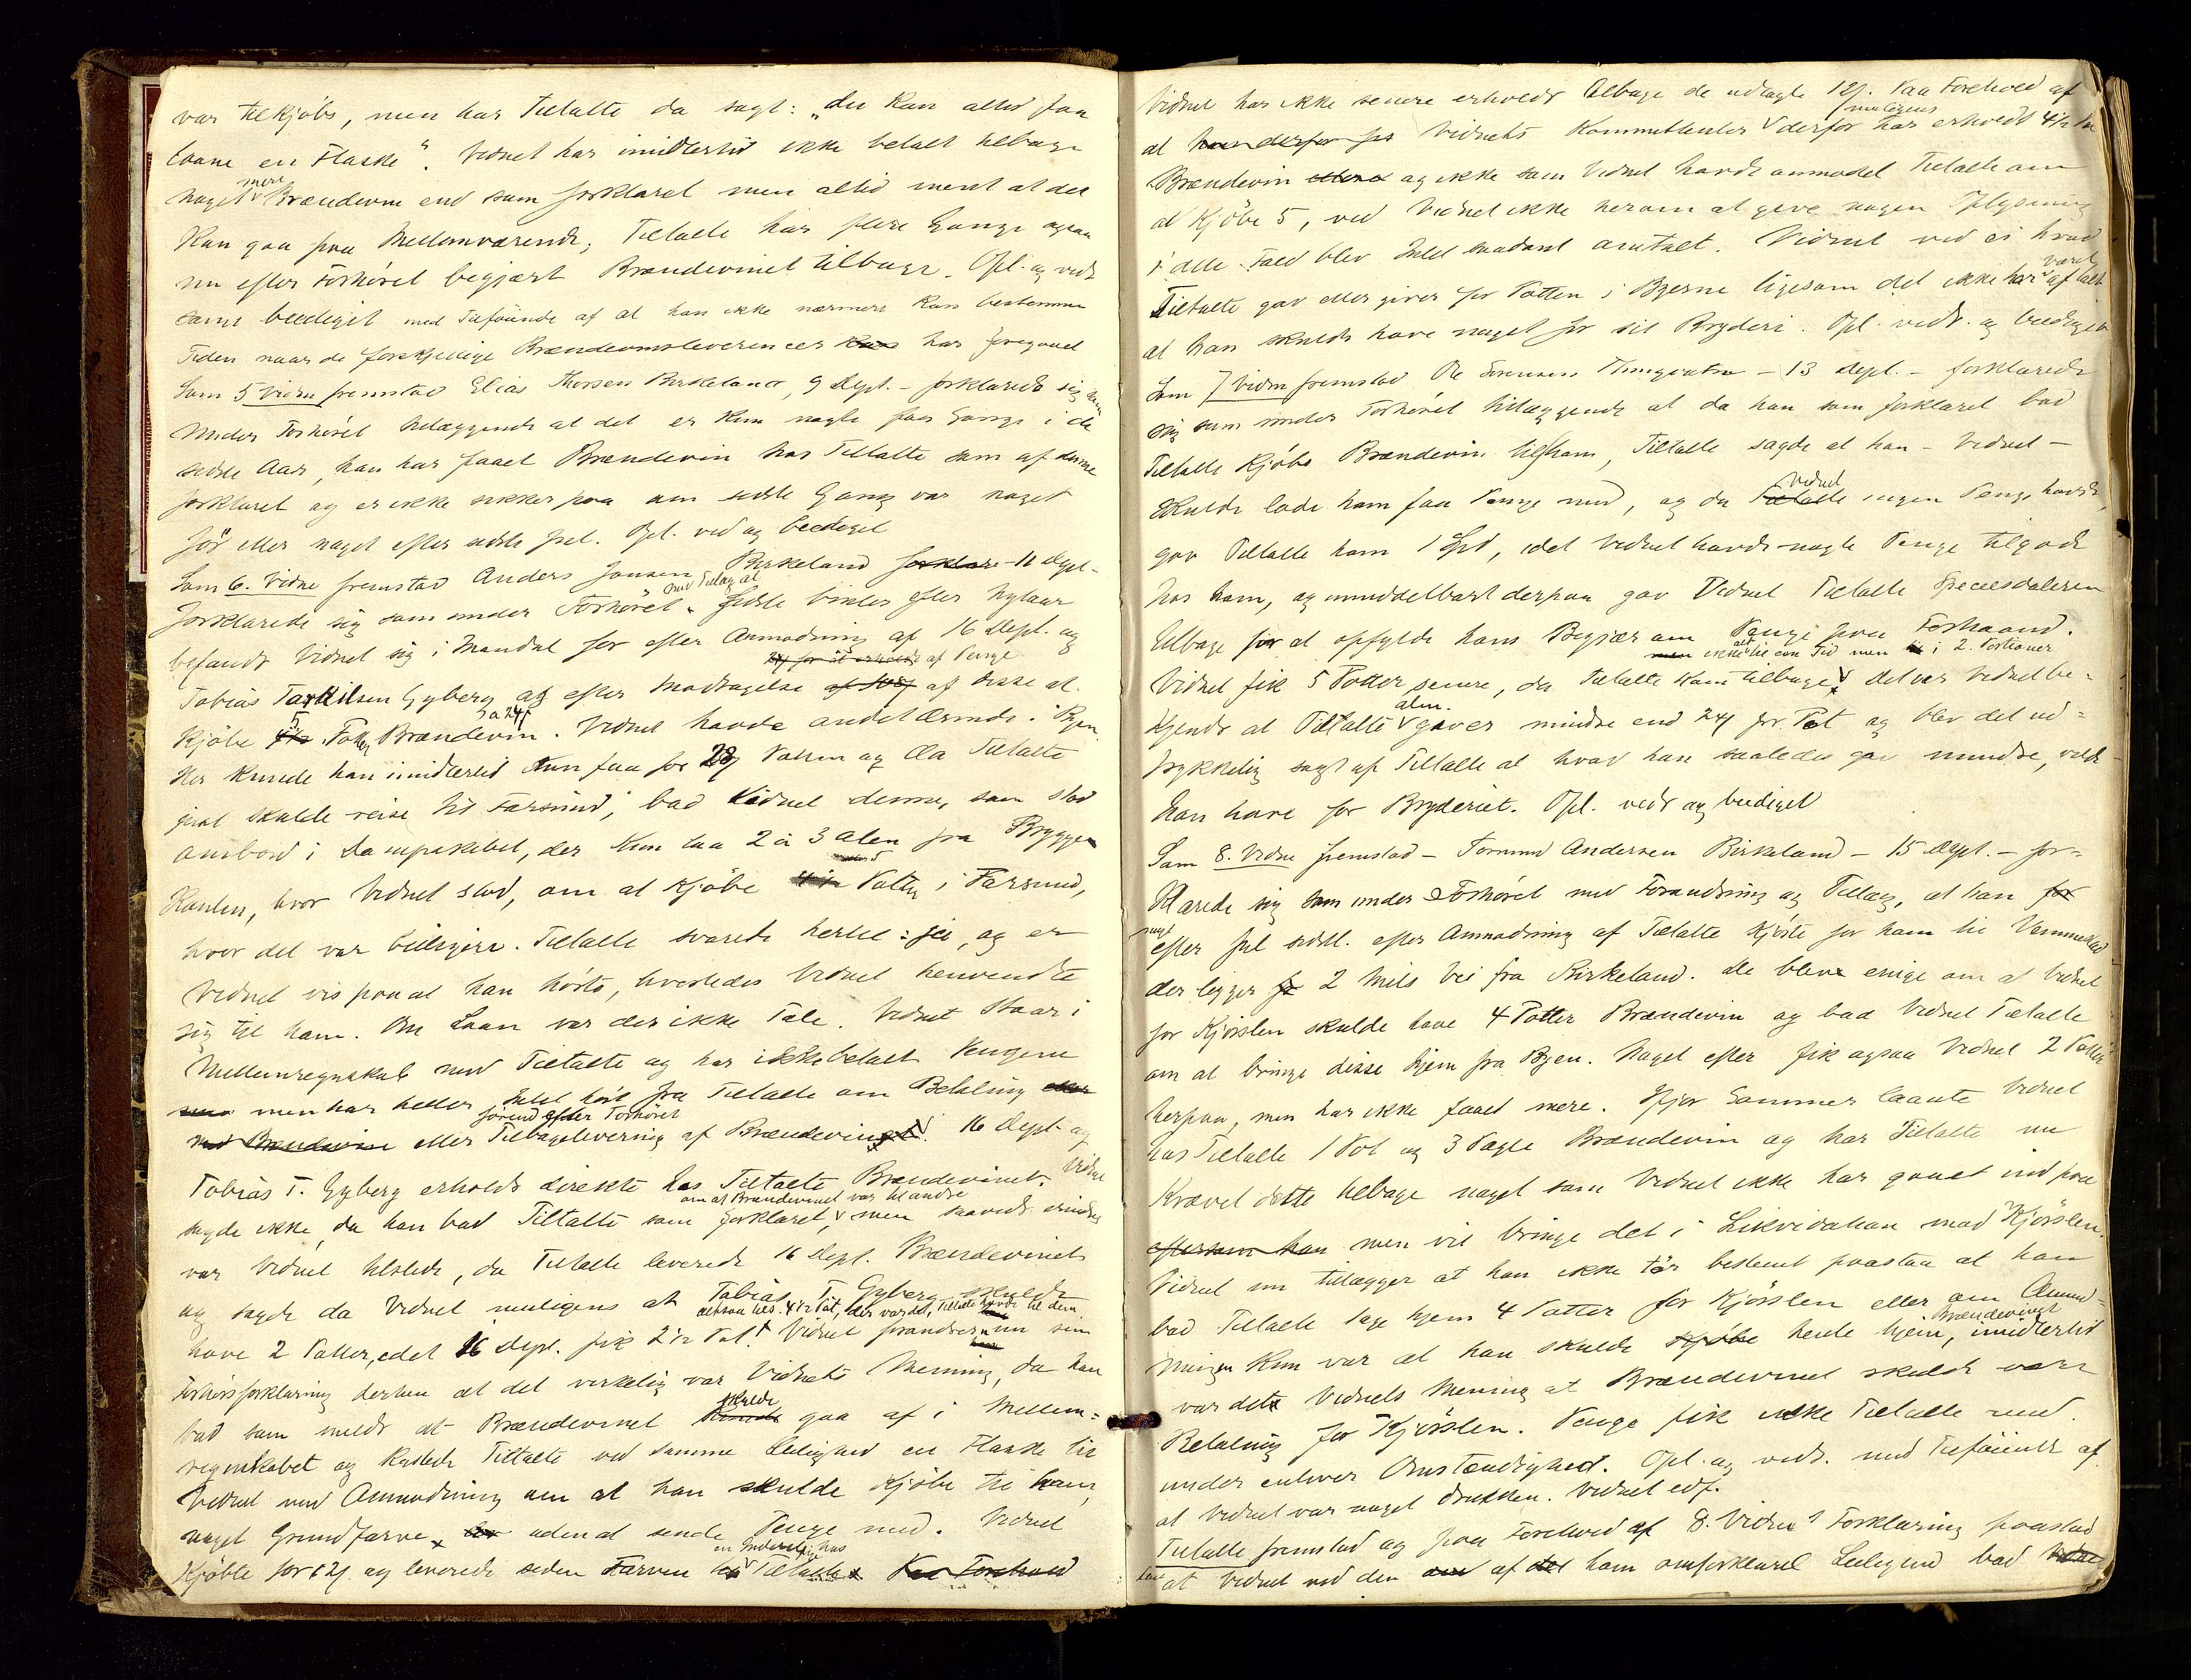 var tilkjøbs, men har Tiltalte da sagt: „du kan altid faa
laane en Flaske“. Vidnet har imidlertid ikke betalt tilbage
noget mere Brændevin end som forklaret men altid ment at det
kan gaa paa Mellemværende; Tiltalte har flere Gange ogsaa
nu efter Forhøret begjært Brændevinet tilbage. Opl. og vedt.
samt beediget med Tilføiende af at han ikke nærmere kan bestemme
Tiden naar de forskjellige Brændevinsleverencer har foregaaet
Som 5 Vidne fremstod Elias Thorsen Birkeland, 9 Dept. - forklarede sig som
under Forhøret tillæggende at det er kun nogle faa Gange i de
sidste Aar, han har faaet Brændevin hos Tiltalte som af denne
forklaret og er ikke sikker paa om sidste Gang var noget
før eller noget efter sidste Jul. Opl. ved og beediget
Som 6. Vidne fremstod Anders Jonsen Birkeland forklare - 11 Dept. -
forklarede sig som under Forhøret med Tillæg at sidste Vinter efter Nytaar
befandt Vidnet sig i Mandal for efter Anmodning af 16 Dept. og
Tobias Tarkilsen Gyberg og efter Modtagelse af Penge af disse at
kjøbe 5 Potter Brændevin a 24 s. Vidnet havde andet Ærinde i Byen.
Her kunde han imidlertid kun faa for 28 s Potten og da Tiltalte
just skulde reise til Farsund, bad Vidnet denne, som stod
ombord i Dampskibet, der kun laa 2 à 3 Alen fra Brygge
Kanten, hvor Vidnet stod, om at kjøbe Potter i Farsund,
hvor det var billigere. Tiltalte svarede hertil: jei, og er
Vidnet vis paa at han hørte, hvorledes Vidnet henvendte
sig til ham. Om Laan var der ikke Tale. Vidnet staar i
Mellemregnskab med Tiltalte og har ikke betalt Pengene
men har heller Intet hørt fra Tiltalte om Betaling eller
med Brændevin eller Tilbagelevering af Brændevinet førend efter Forhøret. 16 Dept. og
Tobias T. Gyberg erholdt direkte hos Tiltalte Brændevinet. Vidnet
sagde ikke, da han bad Tiltalte som forklaret, om at Brændevinet var til andre men saavidt erindres
var Vidnet tilstede, da Tiltalte leverede 16 Dept. Brændevinet
og sagde da Vidnet muligens at Tobias T. Gyberg skulde
have 2 Potter, idet 16 Dept. fik 2½ Pot, altsaa tils. 4½ Pot, der var det, Tiltalte havde til dem. Vidnet forandrer nu sin
Forhørsforklaring derhen at det virkelig var Vidnets Mening, da han
bad som meldt at Brændevinet skulde gaa af i Mellem=
regnskabet og kastede Tiltalte ved samme Leilighed en Flaske til
Vidnet med Anmodning om at han skulde kjøbe til ham
noget Grundfarve uden at sende Penge med. Vidnet
kjøbte for 12 s. og leverede siden Farven en Inderst hos Tiltalte. Paa Forehold
Vidnet har ikke senere erholdt tilbage de udlagte 12 s. Paa Forehold af
at han derfor for Vidnets Kommittenter muligens derfor har erholdt 4½ Pot
Brændevin og ikke som Vidnet havde anmodet Tiltalte om
at kjøbe 5, ved Vidnet ikke herom at give nogen Oplysning
i dette Fald blev Intet saadant omtalt. Vidnet ved ei hvad
Tiltalte gav eller giver for Potten i Byerne ligesom det ikke har været aftalt
at han skulde have noget for sit Bryderi. Opl. vedt. og beediget
Som 7 Vidne fremstod Ole Sørensen - 13 Dept. - forklarede
sig som under Forhøret tillæggende at da han som forklaret bad
Tiltalte kjøbe Brændevin til ham, Tiltalte sagde at han - Vidnet -
skulde lade ham faa Penge med, og da Vidnet ingen Penge havde,
gav Tiltalte ham 1 Spd, idet Vidnet havde nogle Penge tilgode
hos ham, og umiddelbart derpaa gav Vidnet Tiltalte Speciesdaleren
tilbage for at opfylde hans Begjær om Penge paa Forhaand.
Vidnet fik 5 Potter senere, da Tiltalte kom tilbage men ikke alt til een Tid men i 2 Portioner. Det var Vidnet be=
kjendt at Tiltalte alm. gaver mindre end 24 s pr. Pot og blev det ud=
trykkelig sagt af Tiltalte at hvad han saaledes gav mindre, vilde
han have for Bryderiet. Opl. vedt og beediget
Som 8. Vidne fremstod - Tormod Andersen Birkeland - 15 Dept. - for=
klarede sig som under Forhøret med Forandring og Tillæg, at han
noget efter Jul sidstl. efter Anmodning af Tiltalte kjørte for ham til Vemmestad
der ligger 2 Mils Vei fra Birkeland. De bleve enige om at Vidnet
for Kjørslen skulde have 4 Potter Brændevin og bad Vidnet Tiltalte
om at bringe disse hjem fra Byen. Noget efter fik ogsaa Vidnet 2 Potter
herpaa, men har ikke faaet mere. Ifjor Sommer laante Vidnet
hos Tiltalte 1 Pot og 3 Pægle Brændevin og har Tiltalte nu
krævet dette tilbage noget som Vidnet ikke har gaaet ind paa
eftersom han men vil bringe det i Likvidation mod Kjørslen.
Vidnet nu tillægger at han ikke tør bestemt paastaa at han
bad Tiltalte tage hjem 4 Potter for Kjørslen eller om Anmod=
ningen kun var at han skulde kjøbe hente hjem Brændevinet, imidlertid
var det Vidnets Mening at Brændevinet skulde være
Betaling for Kjørslen. Penge fik ikke Tiltalte med
under enhver Omstændighed. Opl. og vedt. med Tilføiende af
at Vidnet var noget drukken. Vidnet edf.
Tiltalte fremstod og paa Forehold af 8. Vidnes Forklaring paastod
at Vidnet ved den af ham omforklaret Leilighed bad